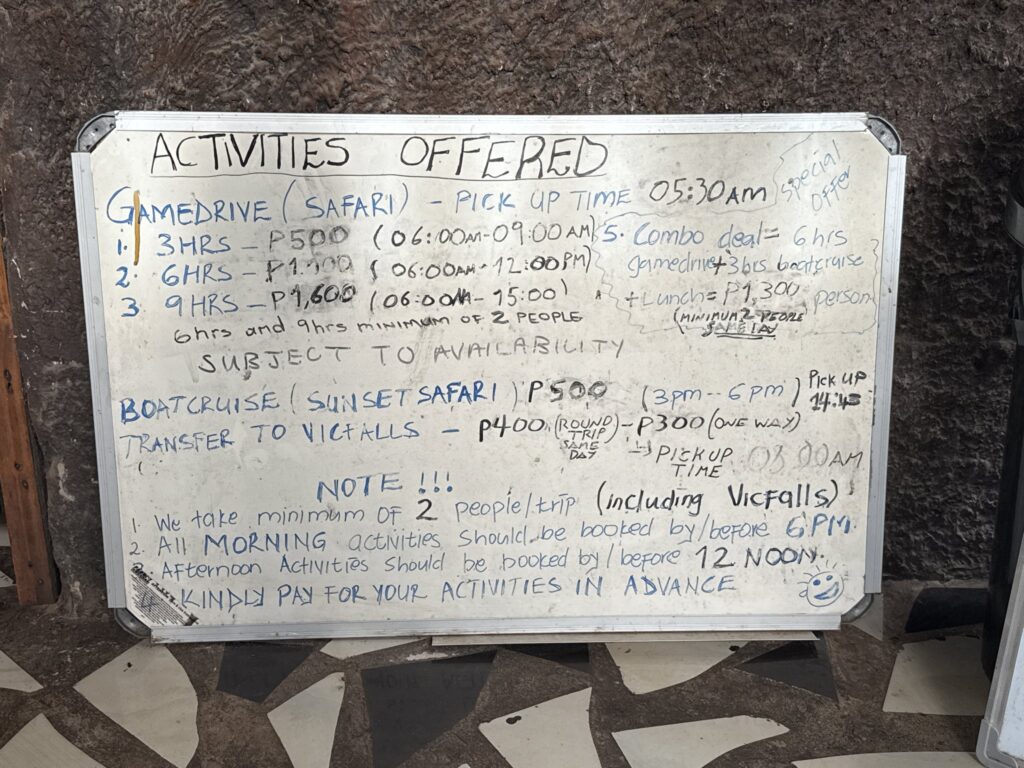 ACTIVITIES OFFERED
GAMEDRIVE (SAFARI) - PICK UP TIME 05:30AM
Special Offer
1. 3HRS - P500 (06:00AM-09:00AM)
2. 6HRS - (06:00AM-12:00PM)
3. 9HRS - P1,600 (06:00AM-15:00)
6hrs and 9hrs MINIMUM OF 2 PEOPLE
SUBJECT TO AVAILABILITY
5. Combo deal = 6hrs
gamedrive+3hrs boatcruise
+Lunch = P1,300 person
(MINIMUM 2 PEOPLE
SAME DAY
BOATCRUISE (SUNSET SAFARI) P500 (3pm--6pm) PICK UP
14:45
TRANSFER TO VICFALLS - P400 (ROUND TRIP SAME DAY) - P300 (ONE WAY)
PICKUP TIME 03:00AM
NOTE !!!
1. We take minimum of 2 people/trip (including Vicfalls)
2. All MORNING activities should be booked by/before 6PM.
Afternoon Activities should be booked by/before 12 NOON.
4 KINDLY PAY FOR YOUR ACTIVITIES IN ADVANCE